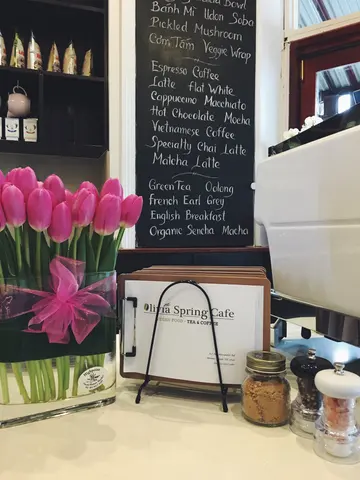 Bowl
Bánh Mì Udon Soba
Pickled Mushroom
Cơm Tấm Veggie Wrap
Espresso Coffee
Latte flat White
Cappuccino Macchiato
Hot Chocolate Mocha
Vietnamese Coffee
Specialty Chai Latte
Matcha Latte
Green Tea Oolong
french Earl Grey
English Breakfast
Organic Sencha Macha
Olivia Spring Cafe
TEA & COFFEE